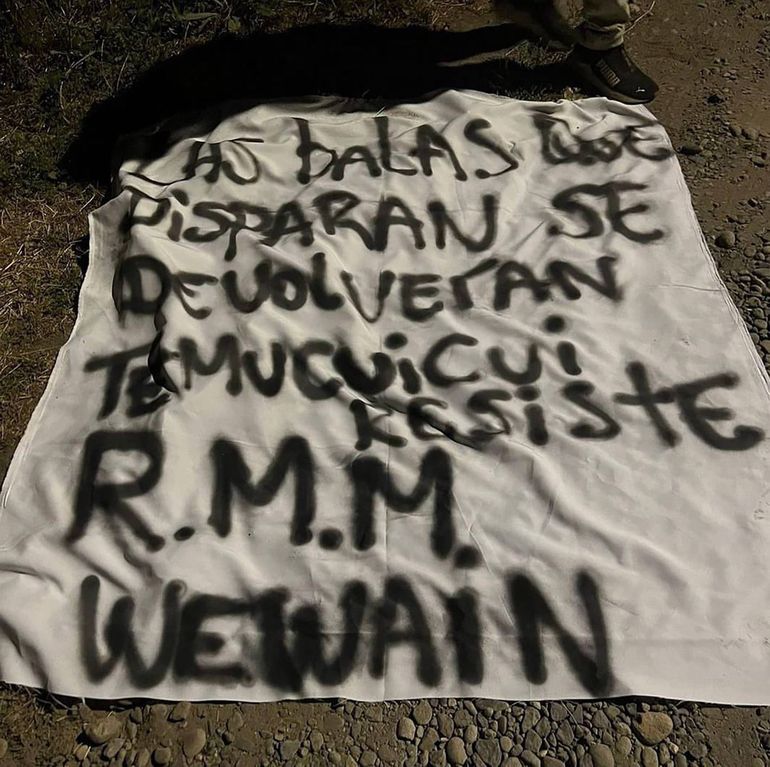 LAS bALAS QUE
DiSPARAN SE
DEVOLVErAN
TEMUCUiCUi
RESiSTE
R.M.M.
WEWAiN